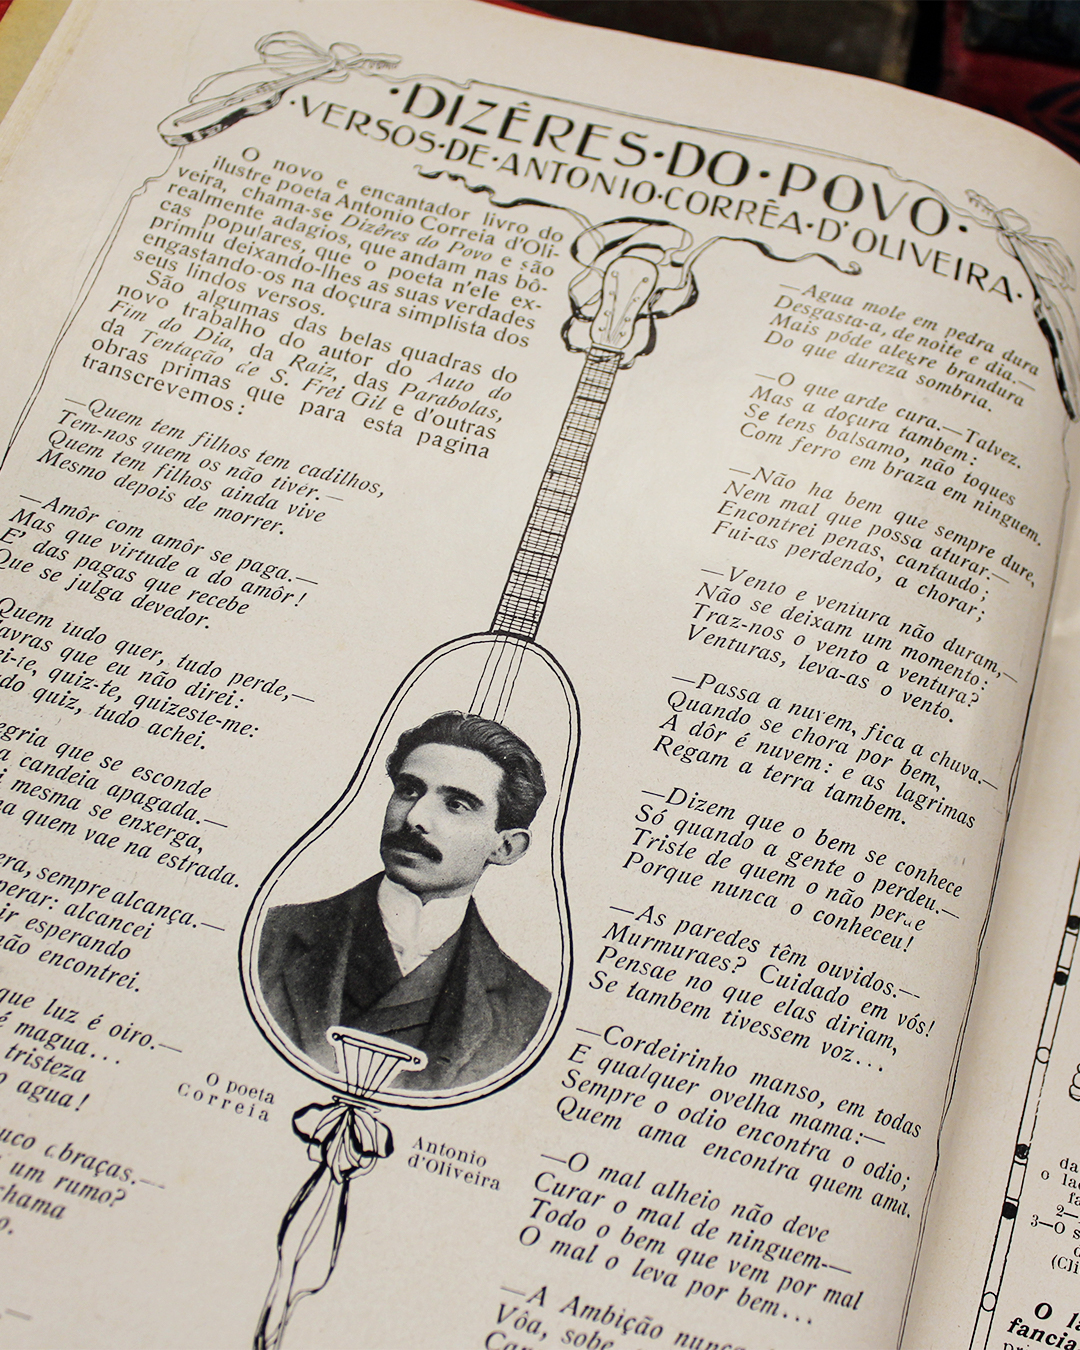 ·DIZÊRES·DO·POVO·
·VERSOS·DE·ANTONIO·CORRÊA·D'OLIVEIRA·
O novo e encantador livro do
ilustre poeta Antonio Correia d'Oli-
veira, chama-se Dizêres do Povo e são
realmente adagios, que andam nas bô-
cas populares, que o poeta n'ele ex-
primiu deixando-lhes as suas verdades
engastando-os na doçura simplista dos
seus lindos versos.
São algumas das belas quadras do
novo trabalho do autor do Auto do
Fim do Dia, da Raiz, das Parabolas,
da Tentação de S. Frei Gil e d'outras
obras primas que para esta pagina
transcrevemos:
—Quem tem filhos tem cadilhos,
Tem-nos quem os não tivér.—
Quem tem filhos ainda vive
Mesmo depois de morrer.
—Amôr com amôr se paga.—
Mas que virtude a do amôr!
E' das pagas que recebe
Que se julga devedor.
Quem tudo quer, tudo perde,—
avras que eu não direi:
ei-te, quiz-te, quizeste-me:
do quiz, tudo achei.
egria que se esconde
a candeia apagada.—
i mesma se enxerga,
na quem vae na estrada.
era, sempre alcança.—
perar: alcancei
ir esperando
não encontrei.
que luz é oiro.—
é magua...
tristeza
o agua!
uco abraças.—
um rumo?
chama
o.
O poeta
Correia
Antonio
d'Oliveira
—Agua mole em pedra dura
Desgasta-a, de noite e dia.—
Mais póde alegre brandura
Do que dureza sombria.
—O que arde cura.—Talvez.
Mas a doçura tambem:
Se tens balsamo, não toques
Com ferro em braza em ninguem.
—Não ha bem que sempre dure,
Nem mal que possa aturar.—
Encontrei penas, cantaudo;
Fui-as perdendo, a chorar;
—Vento e ventura não duram,—
Não se deixam um momento:
Traz-nos o vento a ventura?
Venturas, leva-as o vento.
—Passa a nuvem, fica a chuva.—
Quando se chora por bem,
A dôr é nuvem: e as lagrimas
Regam a terra tambem.
—Dizem que o bem se conhece
Só quando a gente o perdeu.—
Triste de quem o não perde
Porque nunca o conheceu!
—As paredes têm ouvidos.—
Murmuraes? Cuidado em vós!
Pensae no que elas diriam,
Se tambem tivessem voz...
—Cordeirinho manso, em todas
E qualquer ovelha mama:—
Sempre o odio encontra o odio;
Quem ama encontra quem ama.
—O mal alheio não deve
Curar o mal de ninguem—
Todo o bem que vem por mal
O mal o leva por bem...
—A Ambição nunca
Vôa, sobe
da
o la
fa
2—
3—O s
(Cli
O la
fancia